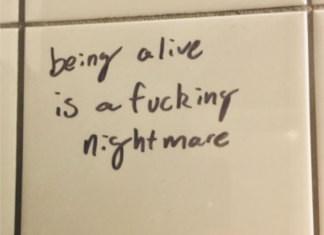 being alive
is a fucking
nightmare